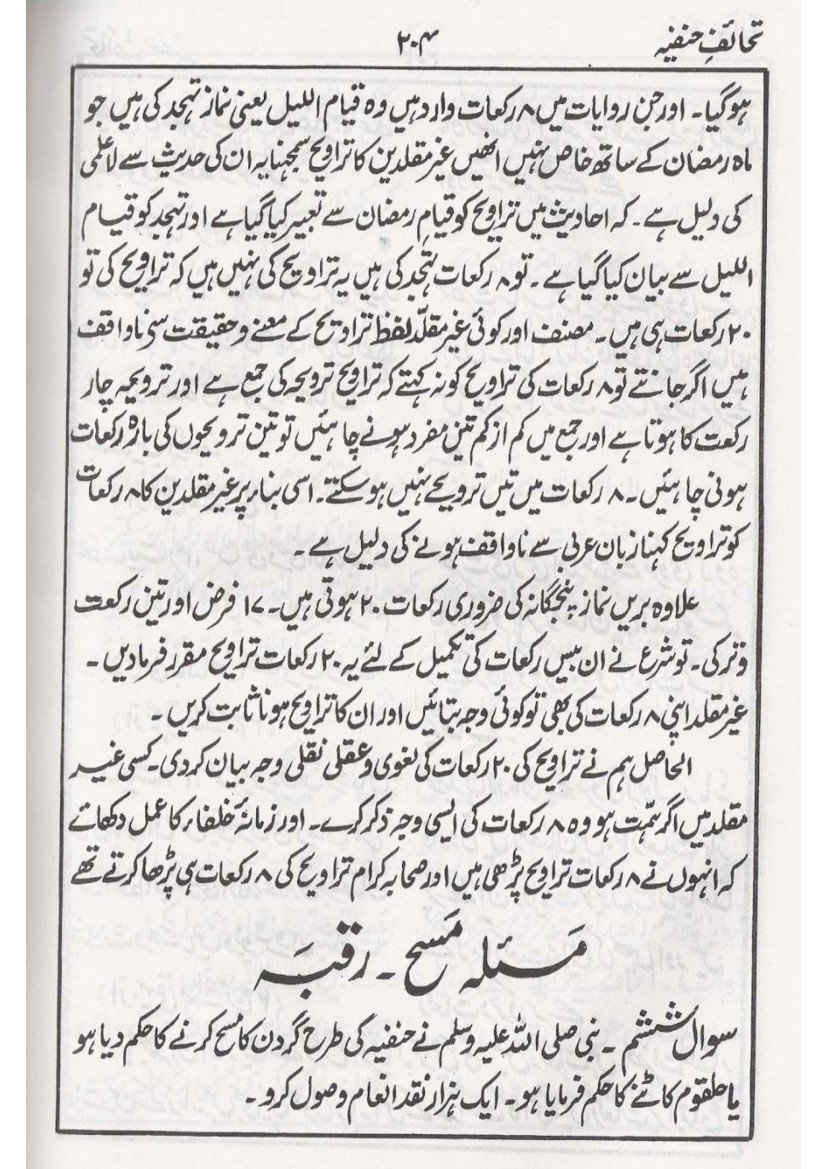 تحائفِ حنفیہ
۲۰۴
ہوگیا۔ اور جن روایات میں ۸ رکعات وارد ہیں وہ قیام اللیل یعنی نماز تہجد کی ہیں جو
ماہ رمضان کے ساتھ خاص نہیں انھیں غیر مقلدین کا تراویح سمجہنا یہ ان کی حدیث سے لاعلمی
کی دلیل ہے۔ کہ احادیث میں تراویح کو قیامِ رمضان سے تعبیر کیا گیا ہے اور تہجد کو قیام
اللیل سے بیان کیا گیا ہے۔ تو ۸ رکعات تہجد کی ہیں یہ تراویح کی نہیں ہیں کہ تراویح کی تو
۲۰ رکعات ہی ہیں۔ مصنف اور کوئی غیر مقلّد لفظ تراویح کے معنے و حقیقت سے ناواقف
ہیں اگر جانتے تو ۸ رکعات کی تراویح کو نہ کہتے کہ تراویح ترویحہ کی جمع ہے اور ترویحہ چار
رکعت کا ہوتا ہے اور جمع میں کم از کم تین مفرد ہونے چاہئیں تو تین ترویحوں کی بارہ رکعات
ہونی چاہئیں۔ ۸ رکعات میں تین ترویحے نہیں ہو سکتے۔ اسی بناء پر غیر مقلدین کا ۸ رکعات
کو تراویح کہنا زبان عربی سے ناواقف ہونے کی دلیل ہے۔
علاوہ بریں نماز پنجگانہ کی ضروری رکعات ۲۰ ہوتی ہیں۔ ۱۷ فرض اور تین رکعت
وتر کی۔ تو شرع نے ان بیس رکعات کی تکمیل کے لئے یہ ۲۰ رکعات تراویح مقرر فرمادیں۔
غیر مقلد اپنی ۸ رکعات کی بھی تو کوئی وجہ بتائیں اور ان کا تراویح ہونا ثابت کریں۔
الحاصل ہم نے تراویح کی ۲۰ رکعات کی لغوی و عقلی نقلی وجہ بیان کر دی۔ کسی غیر
مقلد میں اگر ہمّت ہو وہ ۸ رکعات کی ایسی وجہ ذکر کرے۔ اور زمانۂ خلفاء کا عمل دکھائے
کہ انہوں نے ۸ رکعات تراویح پڑھی ہیں اور صحابہ کرام تراویح کی ۸ رکعات ہی پڑھا کرتے تھے
مَسئلہ مَسح۔ رقبَہ
سوال ششم۔ نبی صلی اللہ علیہ وسلم نے حنفیہ کی طرح گردن کا مسح کرنے کا حکم دیا ہو
یا حلقوم کاٹنے کا حکم فرمایا ہو۔ ایک ہزار نقد انعام وصول کرو۔